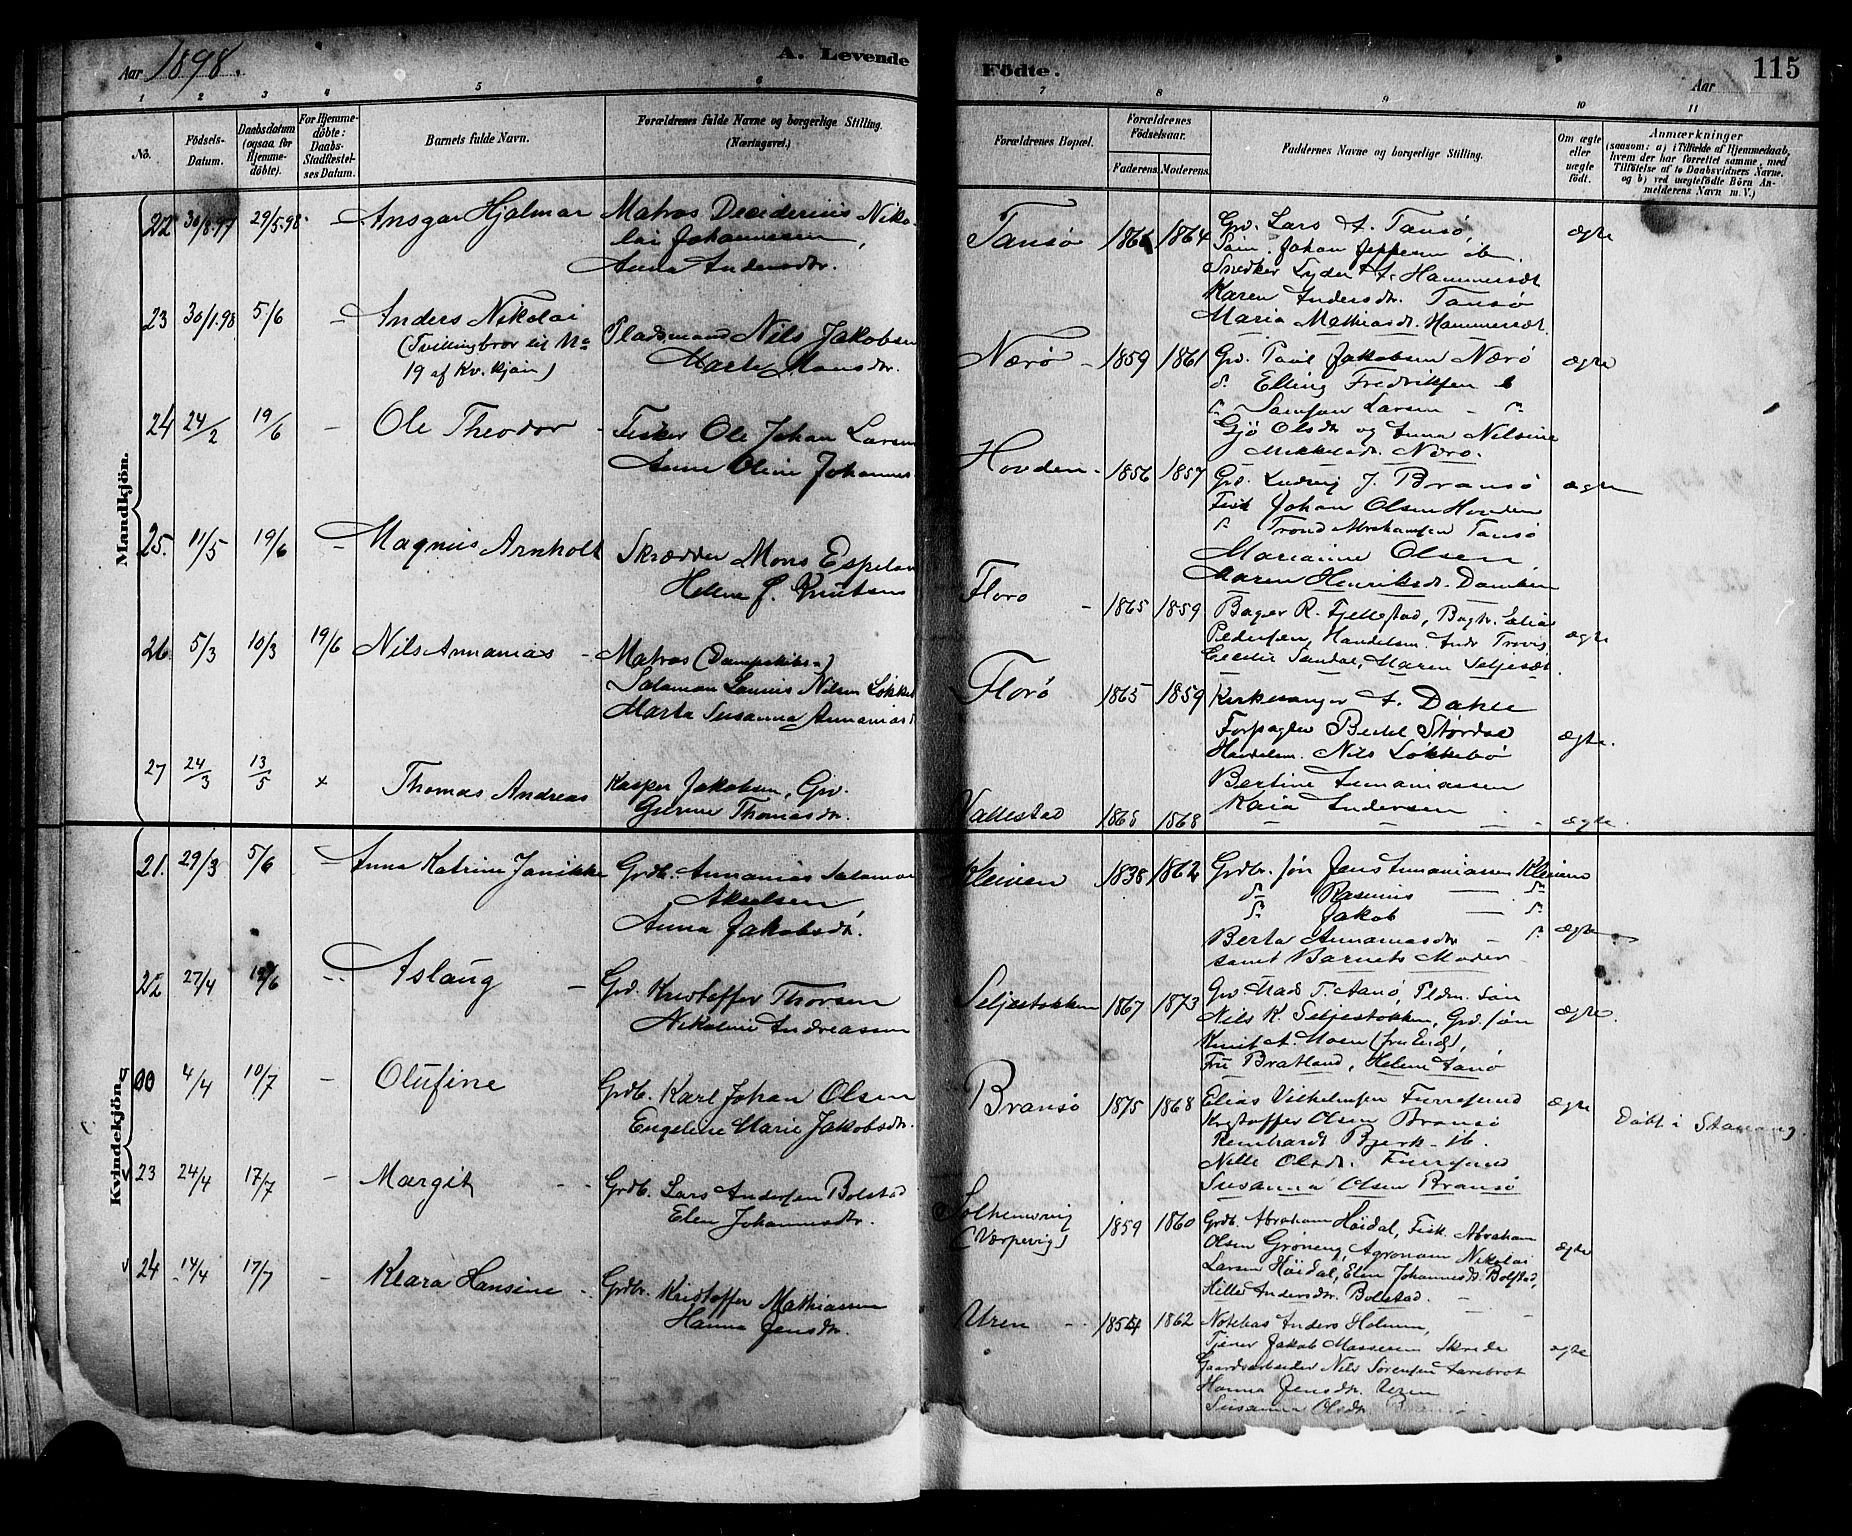 Aar 1898.
A. Levende
Födte.
Aar
115
1 2 3 4 5 6 7 8 9 10 11
No.
Födsels-
Datum.
Daabsdatum
(ogsaa for
Hjemme-
döbte).
For Hjemme-
döbte:
Daabs-
Stadfæstel-
ses Datum.
Barnets fulde Navn.
Forældrenes fulde Navne og borgerlige Stilling.
(Næringsvei.)
Forældrenes Bopæl.
Forældrenes
Födselsaar.
Faderens. Moderens.
Faddernes Navne og borgerlige Stilling.
Om ægte
eller
uægte
født.
Anmærkninger
(saasom: a) i Tilfælde af Hjemmedaab,
hvem der har forrettet samme, med
Tilföielse af to Daabsvidners Navne,
og b) ved uægtefödte Börn An-
melderens Navn m. V.)
Mandkjön.
22 30/8.97 29/5.98 - Ansgar Hjalmar
Matros Desiderius Niko-
lai Johannesen,
Anna Andersdtr.
Tansø 1864 ægte
Gv. Lars A. Tansø,
Johan Jeppesen ib.
Snedker Lyder A. Hammersæt
Karen Andersdtr. Tansø
Maria Mathiasdtr. Hammersæt.
23 30/1.98 5/6 - Anders Nikolai
(Tvillingbror til No
19 af Kv.kjøn)
Pladsmand Nils Jakobsen
Marte Monsdtr.
Nærø - 1859 1861 ægte
Gv. Paul Jakobsen Nærø
d. Elling Fredriksen
Samson Larsen
Gjø Olsdtr og Anna Nilsine
Mikkelsdtr. Nærø.
24 24/2 19/6 - Ole Theodor -
Fisker Ole Johan Larsen
Anne Oline Johannes
Hovden - 1856 1857 ægte
Gv. Ludvig J. Bransø
Fisk Johan Olsen Hovden
Trond Abrahamsen Tansø
Marianne Olsen
Maren Henriksdtr.
25. 11/5 19/6 - Magnus Arnholt
Skrædder Mons Espeland
Helene J. Knutsen
Florø - 1865 1859 ægte
Bager R. Fjellestad, Elias
Pedersen, Handelsm. Andr.
Cecilie Sandal, Maren Seljesæt.
26. 5/3 10/3 19/6 Nils Annanias -
Matros (Dampskibs-)
Salamon Nilsen
Marta Susanna Annaniasd
Florø 1865 1859 ægte.
Kirkesanger A. Dahle
Forpagter Bertel Størdal
Handelsm. Nils Løkkebø
Bertine Annaniassen
Kaia Andersen
27 24/3 13/5 x Thomas Andreas
Kasper Jakobsen, Gv.
Gurine Thomasdtr.
Vallestad 1868 ægte.
Kvindekjön.
21. 29/3 5/6 - Anna Katrine Janikke
Grdb. Annanias Salamon
Akselsen
Anna Jakobsdtr.
Kleiven 1838 1862 ægte
Grdbr. søn Jens Annaniassen Kleiven
d. Rasmus - d.
d. Jakob - d.
Berta Annaniasdtr - d.
samt Barnets Moder -
22 27/4 12/6 - Aslaug -
Grd. Kristoffer Thorsen
Nikoline Andreassen
Seljestokken 1867 1873 ægte.
Gv. Mads T. Aanø, Pldm. Søn
Nils K. Seljestokken, Grd. søn
Knut A. Moen
Fru Bratland, Helene Aanø
00 4/4 10/7 - Olufine
Grdb. Karl Johan Olsen
Engeline Marie Jakobsdtr.
Bransø 1875 1868 ægte
Elias Vilhelmsen Furresund
Kristoffer Olsen Bransø
Reinhardt Bjerk - ib.
Nille Olsdtr. Furresund
Susanna Olsen Bransø
Døbt i Stavang.
23 24/4 17/7 - Margit - -
Grdb. Lars Andersen Bolstad
Elen Johannesdtr.
Solheimsvig
(Værpevig) 1859 1860 ægte
Grdb. Abraham Høidal, Fisk. Abraham
Olsen Grøneng, Agronom Nikolai
Larsen Høidal, Elen Johannesdtr Bolstad,
Hille Andersdtr. Bolstad.
24 14/4 17/7 - Klara Hansine -
Grdbr. Kristoffer Mathiassen
Hanna Jensdtr.
Uren - 1854 1862 ægte
Notebas Anders Holmen,
Tjener Jakob Massesen Skrede
Gaardsarbeider Nils Sørensen Aarebrot
Hanna Jensdtr. Uren
Susanna Olsdtr